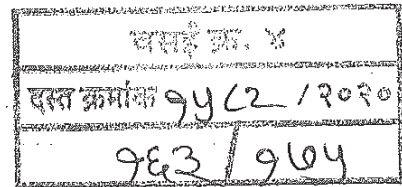 वसई क्र. ४
दस्त क्रमांक १५८२ / २०२०
१६३ / १७५